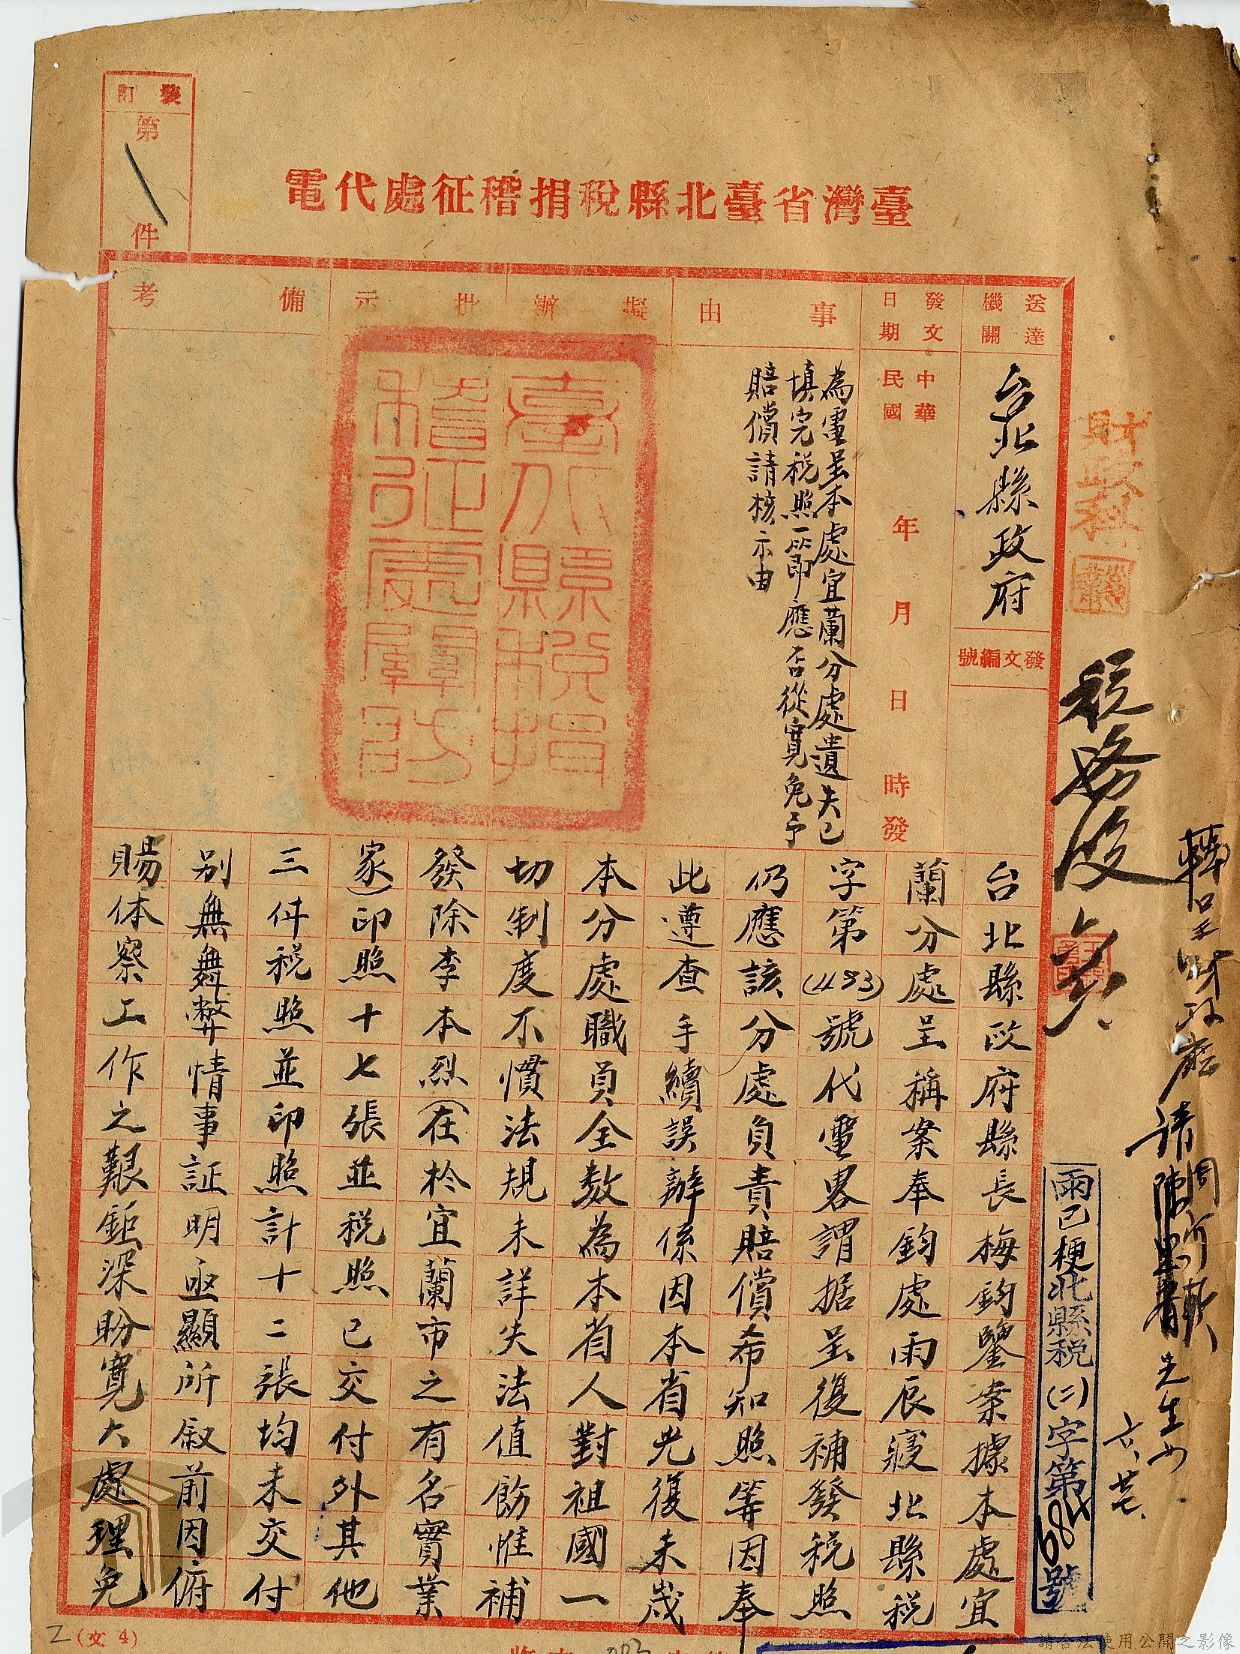 裝訂
第
件
臺灣省臺北縣稅捐稽征處代電
送達機關
台北縣政府
發文編號
發文日期
中華民國
年
月
日
時發
事由
擬辦
批示
備考
為電呈本處宜蘭分處遺失已
填完稅照一節應否從寬免予
賠償請核示由
臺北縣稅捐
稽征處關防
財政科
稅務股
轉呈財政廳
請
先生
雨已梗北縣税(二)字第684號
台北縣政府縣長梅鈞鑒案據本處宜
蘭分處呈稱案奉鈞處雨辰寢北縣税
字第(483)號代電畧謂據呈復補發税照
仍應該分處負責賠償希知照等因奉
此遵查手續誤辦係因本省光復未歲
本分處職員全数為本省人對祖國一
切制度不慣法規未詳失法值飭惟補
發除李本烈(在於宜蘭市之有名實業
家)印照十七張並税照已交付外其他
三件税照並印照計十二張均未交付
別無舞弊情事証明亟顯所叙前因俯
賜体察工作之艱鉅深盼寬大處理免
(文4)
請合法使用公開之影像